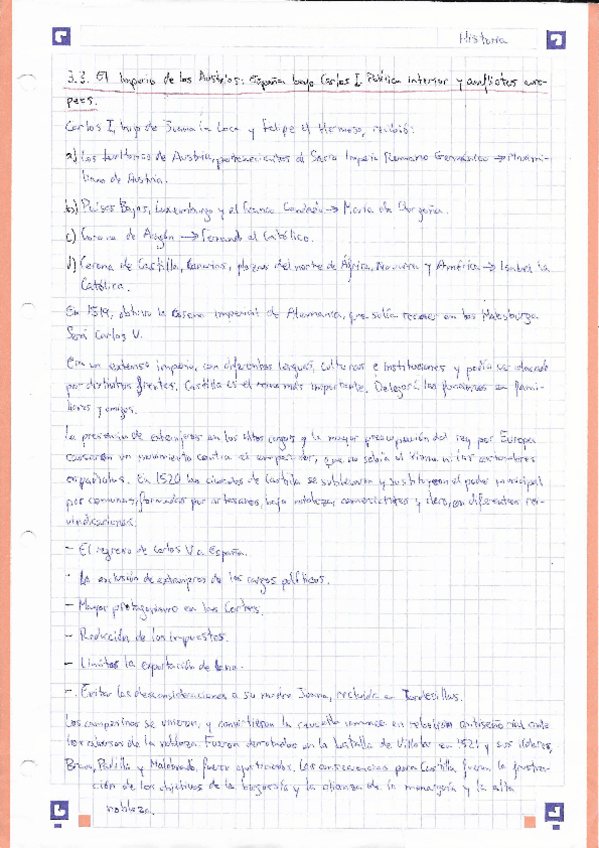 Historia
3.3. El Imperio de los Austrias: España bajo Carlos I. Política interior y conflictos euro-
peos.
Carlos I, hijo de Juana la Loca y Felipe el Hermoso, recibió:
a) Los territorios de Austria, pertenecientes al Sacro Imperio Romano Germánico → Maximi-
liano de Austria.
b) Países Bajos, Luxemburgo y el Franco Condado → María de Borgoña.
c) Corona de Aragón → Fernando el Católico.
d) Corona de Castilla, Canarias, plazas del norte de África, Navarra y América → Isabel la
Católica.
En 1519, obtuvo la corona imperial de Alemania, que solía recaer en los Habsburgo
Será Carlos V.
Era un extenso imperio, con diferentes lenguas, culturas e instituciones y podía ser atacado
por distintos frentes. Castilla es el reino más importante. Delegará las funciones en fami-
liares y amigos.
La presencia de extranjeros en los altos cargos y la mayor preocupación del rey por Europa
causaron un movimiento contra el emperador, que no sabía el idioma ni las costumbres
españolas. En 1520 las ciudades de Castilla se sublevaron y sustituyeron el poder municipal
por comunas, formadas por artesanos, baja nobleza, comerciantes y clero, con diferentes rei-
vindicaciones:
- El regreso de Carlos V a España.
- La exclusión de extranjeros de los cargos políticos.
- Mayor protagonismo en las Cortes.
- Reducción de los impuestos.
- Limitar la exportación de lana.
- Evitar las desconsideraciones a su madre Juana, recluida en Tordesillas.
Los campesinos se unieron, y convirtieron la revuelta comunera en rebelión antiseñorial ante
los abusos de la nobleza. Fueron derrotados en la batalla de Villalar en 1521 y sus líderes,
Bravo, Padilla y Maldonado, fueron ajusticiados. Las consecuencias para Castilla fueron la frustra-
ción de los objetivos de la burguesía y la alianza de la monarquía y la alta
nobleza.